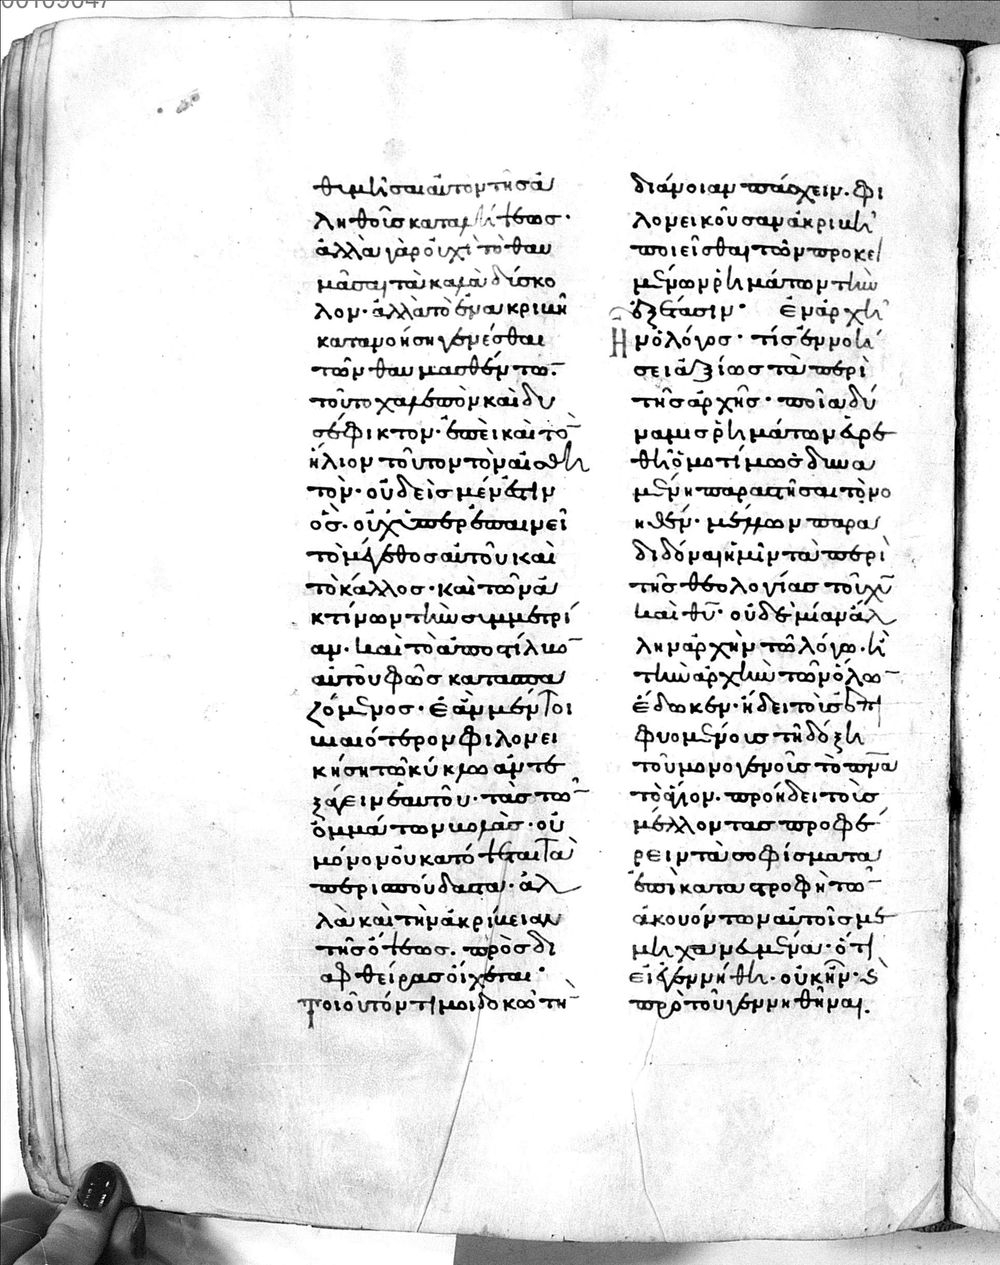 θυμῆσαι αὐτὸν τῆς ἀ
ληθοῦς καταλήψεως·
ἀλλὰ γὰρ οὐχὶ τὸ θαυ
μᾶσαι τὰ καλὰ δύσκο
λον· ἀλλὰ τὸ ἐν ἀκριβῆ
κατανοήσει γενέσθαι
τῶν θαυμασθέντω̅·
τοῦτο χαλεπὸν καὶ δυ
σέφικτον· ἐπεὶ καὶ το̅
ἥλιον τοῦτον τὸν αἰσθη
τὸν· οὐδεὶς μέν ἐστιν
ὃς οὐχ ὑπερεπαινεῖ
τὸ μέγεθος αὐτοῦ καὶ
τὸ κάλλος· καὶ τῶν ἀ
κτίνων τὴν συμμετρί
αν· καὶ τὸ ἀποστίλβο̅
αὐτοῦ φῶς καταπλα
ζόμενος· ἐὰν μέντοι
βιαιότερον φιλονει
κήσῃ τῷ κύκλῳ ἀντε
ξάγειν ἑαυτοῦ· τὰς τω̅
ὀμμάτων βολὰς· οὐ
μόνον οὐ κατόψεται τὰ
περισπούδαστα· ἀλ
λὰ καὶ τὴν ἀκρίβειαν
τῆς ὄψεως· προσδι
αφθείρας οἴχεται·
Τοιοῦτόν τί μοι δοκῶ τὴ̅
διάνοιαν πάσχειν· φι
λονεικοῦσαν ἀκριβῆ
ποιεῖσθαι τῶν προκει
μένων ῥημάτων τὴν
ἐξέτασιν· Ἐν ἀρχῆ
Ην ὁ λόγος· τίς ἐννοή
σει ἀξίως τὰ περὶ
τῆς ἀρχῆς· ποία δύ
ναμις ῥημάτων εὑρε
θῆ ὁμοτίμως δυνα
μένη παραστῆσαι τὸ νο
ηθέν· μέλλων παρα
διδόναι ἡμῖν τὰ περὶ
τῆς θεολογίας τοῦ χ̅υ̅
καὶ θ̅υ̅· οὐδεμίαν ἄλ
λην ἀρχὴν τῶ λόγω· ἢ
τὴν ἀρχὴν τῶν ὅλω̅
ἔδωκεν· ἤδει τοῖς ἐπι
φυομένοις τῆ δόξη
τοῦ μονογενοῦς τὸ π̅ν̅α̅
τὸ ἅγιον· προήδει τοὺς
μέλλοντας προφέ
ρειν τὰ σοφίσματα
ἐπὶ καταστροφῆ τω̅
ἀκουόντων αὐτοῖς με
μηχανημένα· ὅτι
εἰ ἐγεννήθη· οὐκ ἦν· καὶ
πρὸ τοῦ γεννηθῆναι.